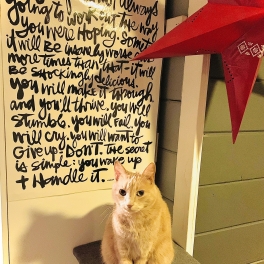 always
going to work out the way
you were hoping. Some
it will be insanely worse
more times than that - it will
be shockingly delicious.
you will make it through
and you'll thrive. you will
stumble. you will fail. you
will cry. you will want to
give up. Don't. the secret
is simple: you wake up
+ handle it.